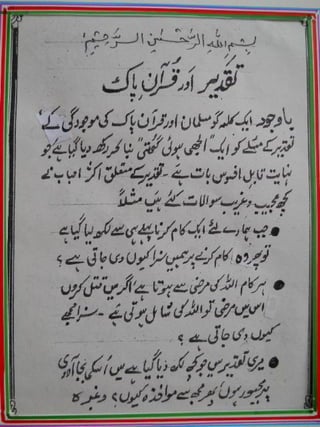 بسم اللہ الرحمٰن الرحیم
تقدیر اور قرآن پاک
باوجود ایک کلمہ گو مسلمان اور قرآن پاک کی موجودگی کے
تقدیر کے مسئلے کو ایک الجھی ہوئی گتھی بنا کر رکھ دیا گیا ہے جو
نہایت قابل افسوس بات ہے۔ تقدیر کے متعلق اکثر احباب نے
کچھ عجیب و غریب سوالات کئے ہیں مثلاً
● جب ہمارے لئے ایک کام کرنا پہلے ہی سے لکھ لیا گیا ہے
تو پھر وہ کام کرنے پر ہمیں سزا کیوں دی جاتی ہے؟
● ہر کام اللہ کی مرضی سے ہوتا ہے اگر میں قتل کروں
اس میں مرضی تو اللہ کی شامل ہوتی ہے ۔ سزا مجھے
کیوں دی جاتی ہے؟
● میری تقدیر میں جو کچھ لکھ دیا گیا ہے میں اس کی بجا آوری
پر مجبور ہوں پھر مجھ سے مواخذہ کیوں؟ وغیرہ کا